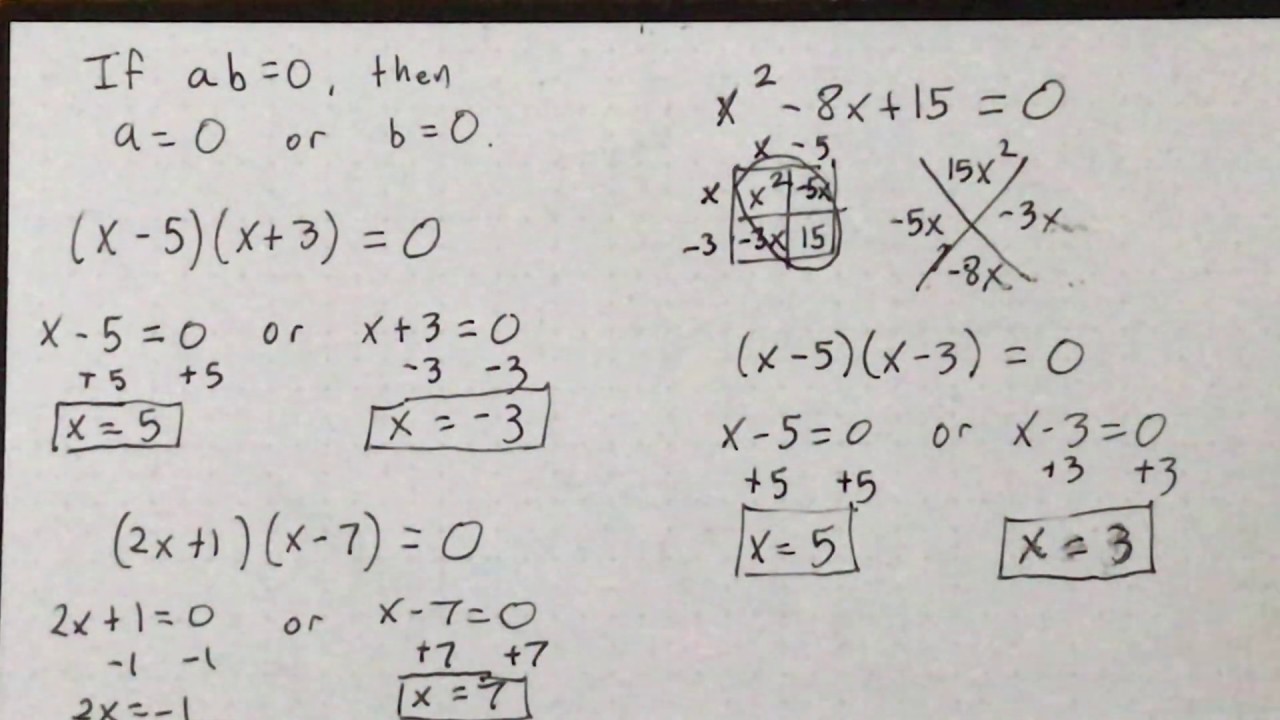 If ab=0, then
a=0 or b=0.
(x-5)(x+3) = 0
x-5=0 or x+3=0
+5 +5 -3 -3
x=5 x=-3
(2x+1)(x-7) = 0
2x+1=0 or x-7=0
-1 -1 +7 +7
2x=-1 x=7
x²-8x+15 = 0
x -5
x x² -5x
-3 -3x 15
15x²
-5x -3x
-8x
(x-5)(x-3) = 0
x-5=0 or x-3=0
+5 +5 +3 +3
x=5 x=3